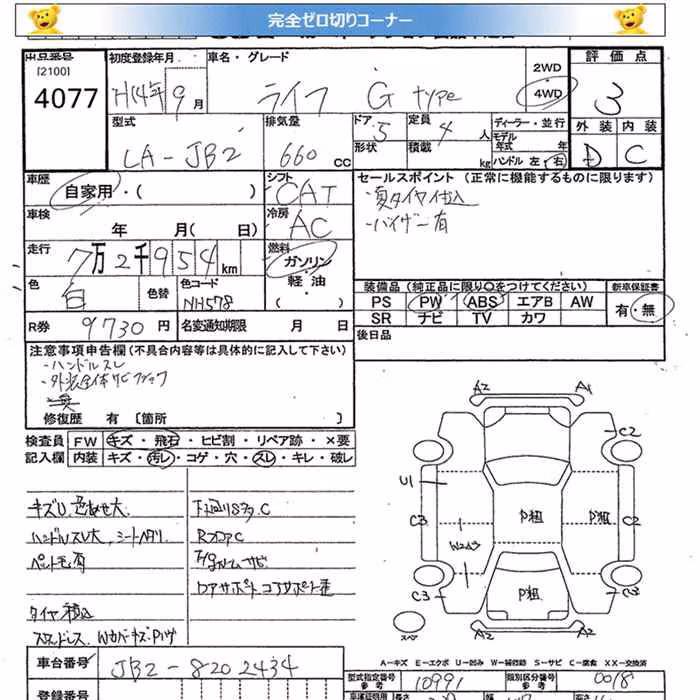 完全ゼロ切りコーナー
出品番号
[2100]
4077
初度登録年月
H14年 9月
車名・グレード
ライフ G type
2WD
4WD
評価点
3
型式
LA-JB2
排気量
660 cc
ドア
5
形状
定員
4 人
積載
kg
ディーラー・並行
モデル
年式 年
ハンドル 左・右
外装 内装
D C
車歴
自家用・( )
シフト
CAT
車検
年 月( 日)
冷房
AC
走行
7万2千954km
燃料
ガソリン
軽油
( )
色
白
色替
色コード
NH578
R券
9730円
名変通知期限 月 日
セールスポイント (正常に機能するものに限ります)
・夏タイヤ仕込
・バイザー有
装備品(純正品に限り○をつけてください)
新車保証書
PS PW ABS エアB AW
有・無
SR ナビ TV カワ
後日品
注意事項申告欄(不具合内容等は具体的に記入して下さい)
・ハンドルスレ
修復歴 有 [箇所 ]
検査員 FW キズ・飛石・ヒビ割・リペア跡・×要
記入欄 内装 キズ・汚レ・コゲ・穴・スレ・キレ・破レ
キズU
ハンドルスレ大、シートヘタリ
タイヤ積込
スタッドレス
下廻りSタ、C
RフロアC
コアサポート
A2 A1
C2
U1
C3 P組 P組 C2
W2
C3 P組 C3
スペア
A2 A2
A-キズ E-エクボ U-凹み W-補修跡 S-サビ C-腐食 XX-交換済
車台番号
JB2-8202434
型式指定番号
参考
10991
類別区分番号
参考
0018
登録番号